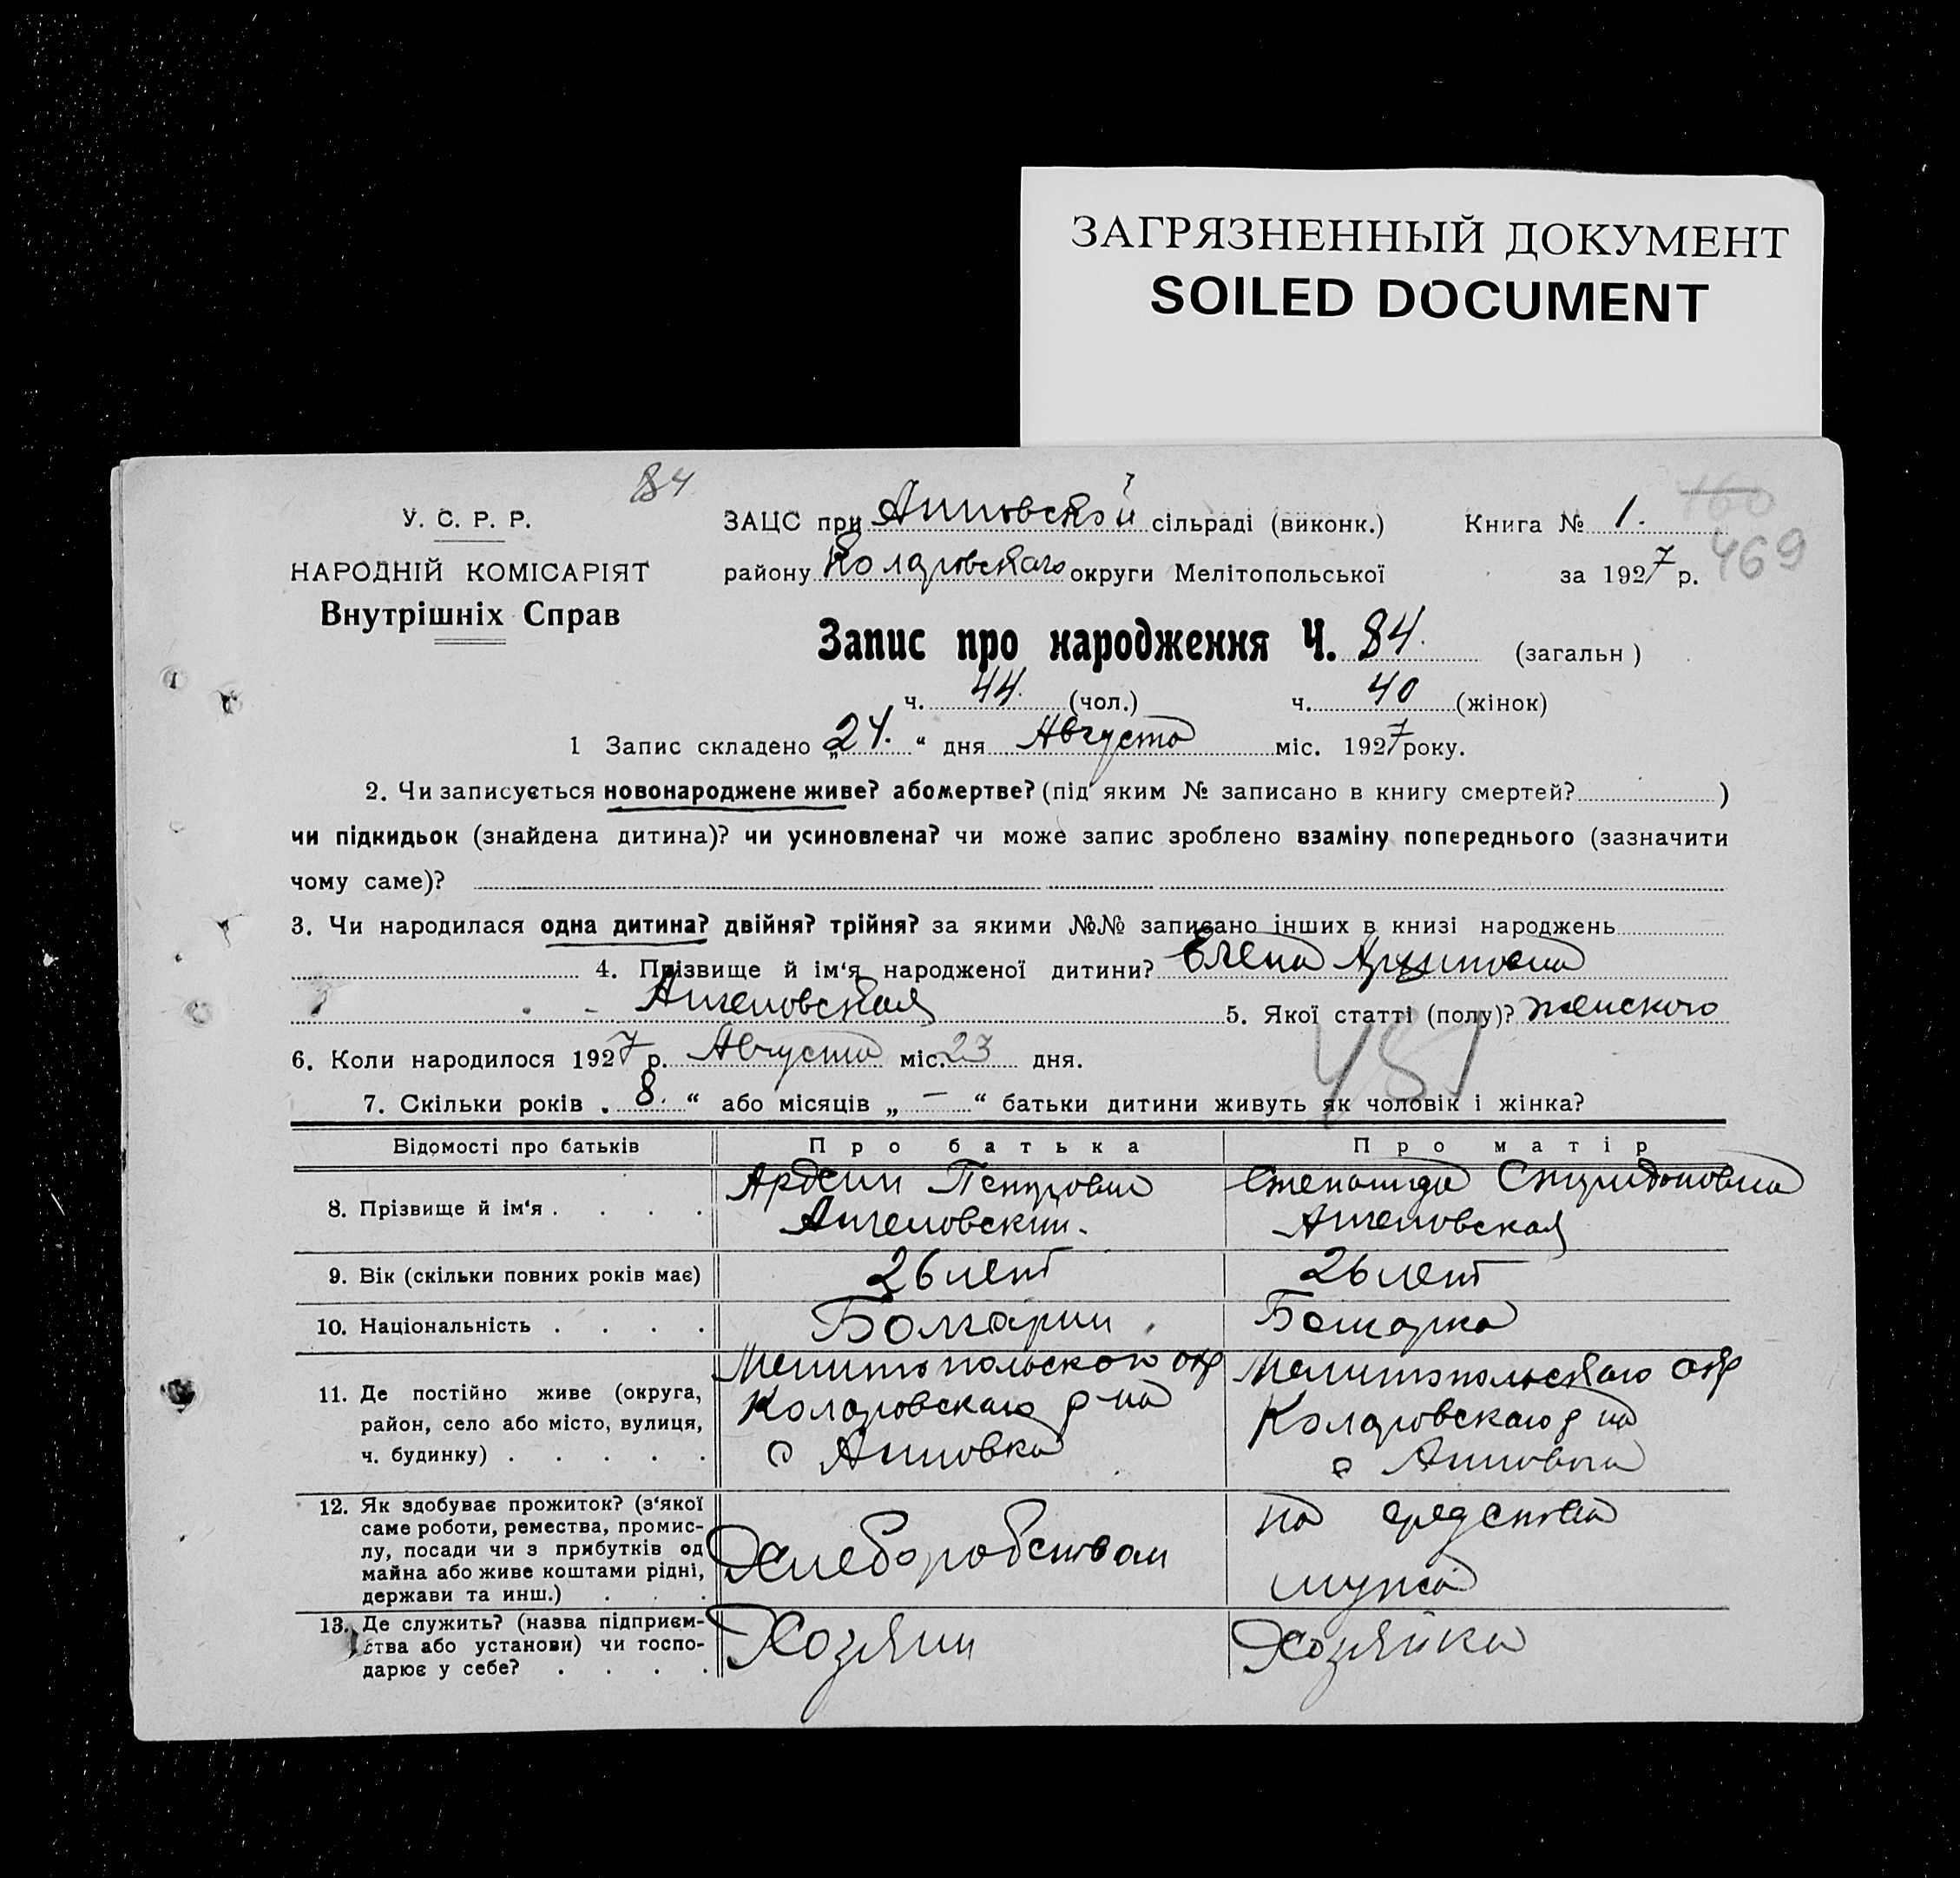 ЗАГРЯЗНЕННЫЙ ДОКУМЕНТ
SOILED DOCUMENT
84
У. С. Р. Р.
НАРОДНІЙ КОМІСАРІЯТ
Внутрішніх Справ
ЗАЦС при Анновской сільраді (виконк.) Книга № 1.
160
району Коларовского округи Мелітопольської за 1927 р.
469
Запис про народження Ч. 84. (загальн)
ч. 44. (чол.) ч. 40 (жінок)
1 Запис складено „24.“ дня Августа міс. 1927 року.
2. Чи записується новонароджене живе? або мертве? (під яким № записано в книгу смертей? )
чи підкидьок (знайдена дитина)? чи усиновлена? чи може запис зроблено взаміну попереднього (зазначити
чому саме)?
3. Чи народилася одна дитина? двійня? трійня? за якими №№ записано інших в книзі народжень
4. Прізвище й ім‘я народженої дитини? Елена
Ангеловская 5. Якої статті (полу)? женского
6. Коли народилося 1927 р. Августа міс. 23 дня.
457
7. Скільки років „ 8. “ або місяців „ — “ батьки дитини живуть як чоловік і жінка?
Відомості про батьків Про батька Про матір
8. Прізвище й ім‘я . . . .
Петрович
Ангеловский.
Степанида Спиридоновна
Ангеловская
9. Вік (скільки повних років має) 26 лет 26 лет
10. Національність . . . . Болгарин. Болгарка
11. Де постійно живе (округа,
район, село або місто, вулиця,
ч. будинку) . . . . .
Мелитопольского окр
Коларовского р-на
с Анновка
Мелитопольского окр
Коларовского р на
с Анновка
12. Як здобуває прожиток? (з‘якої
саме роботи, ремества, промис-
лу, посади чи з прибутків од
майна або живе коштами рідні,
держави та инш.) . . .
Хлеборобством
на средства
мужа
13. Де служить? (назва підприєм-
ства або установи) чи госпо-
дарює у себе? . . . .
Хозяин
Хозяйка